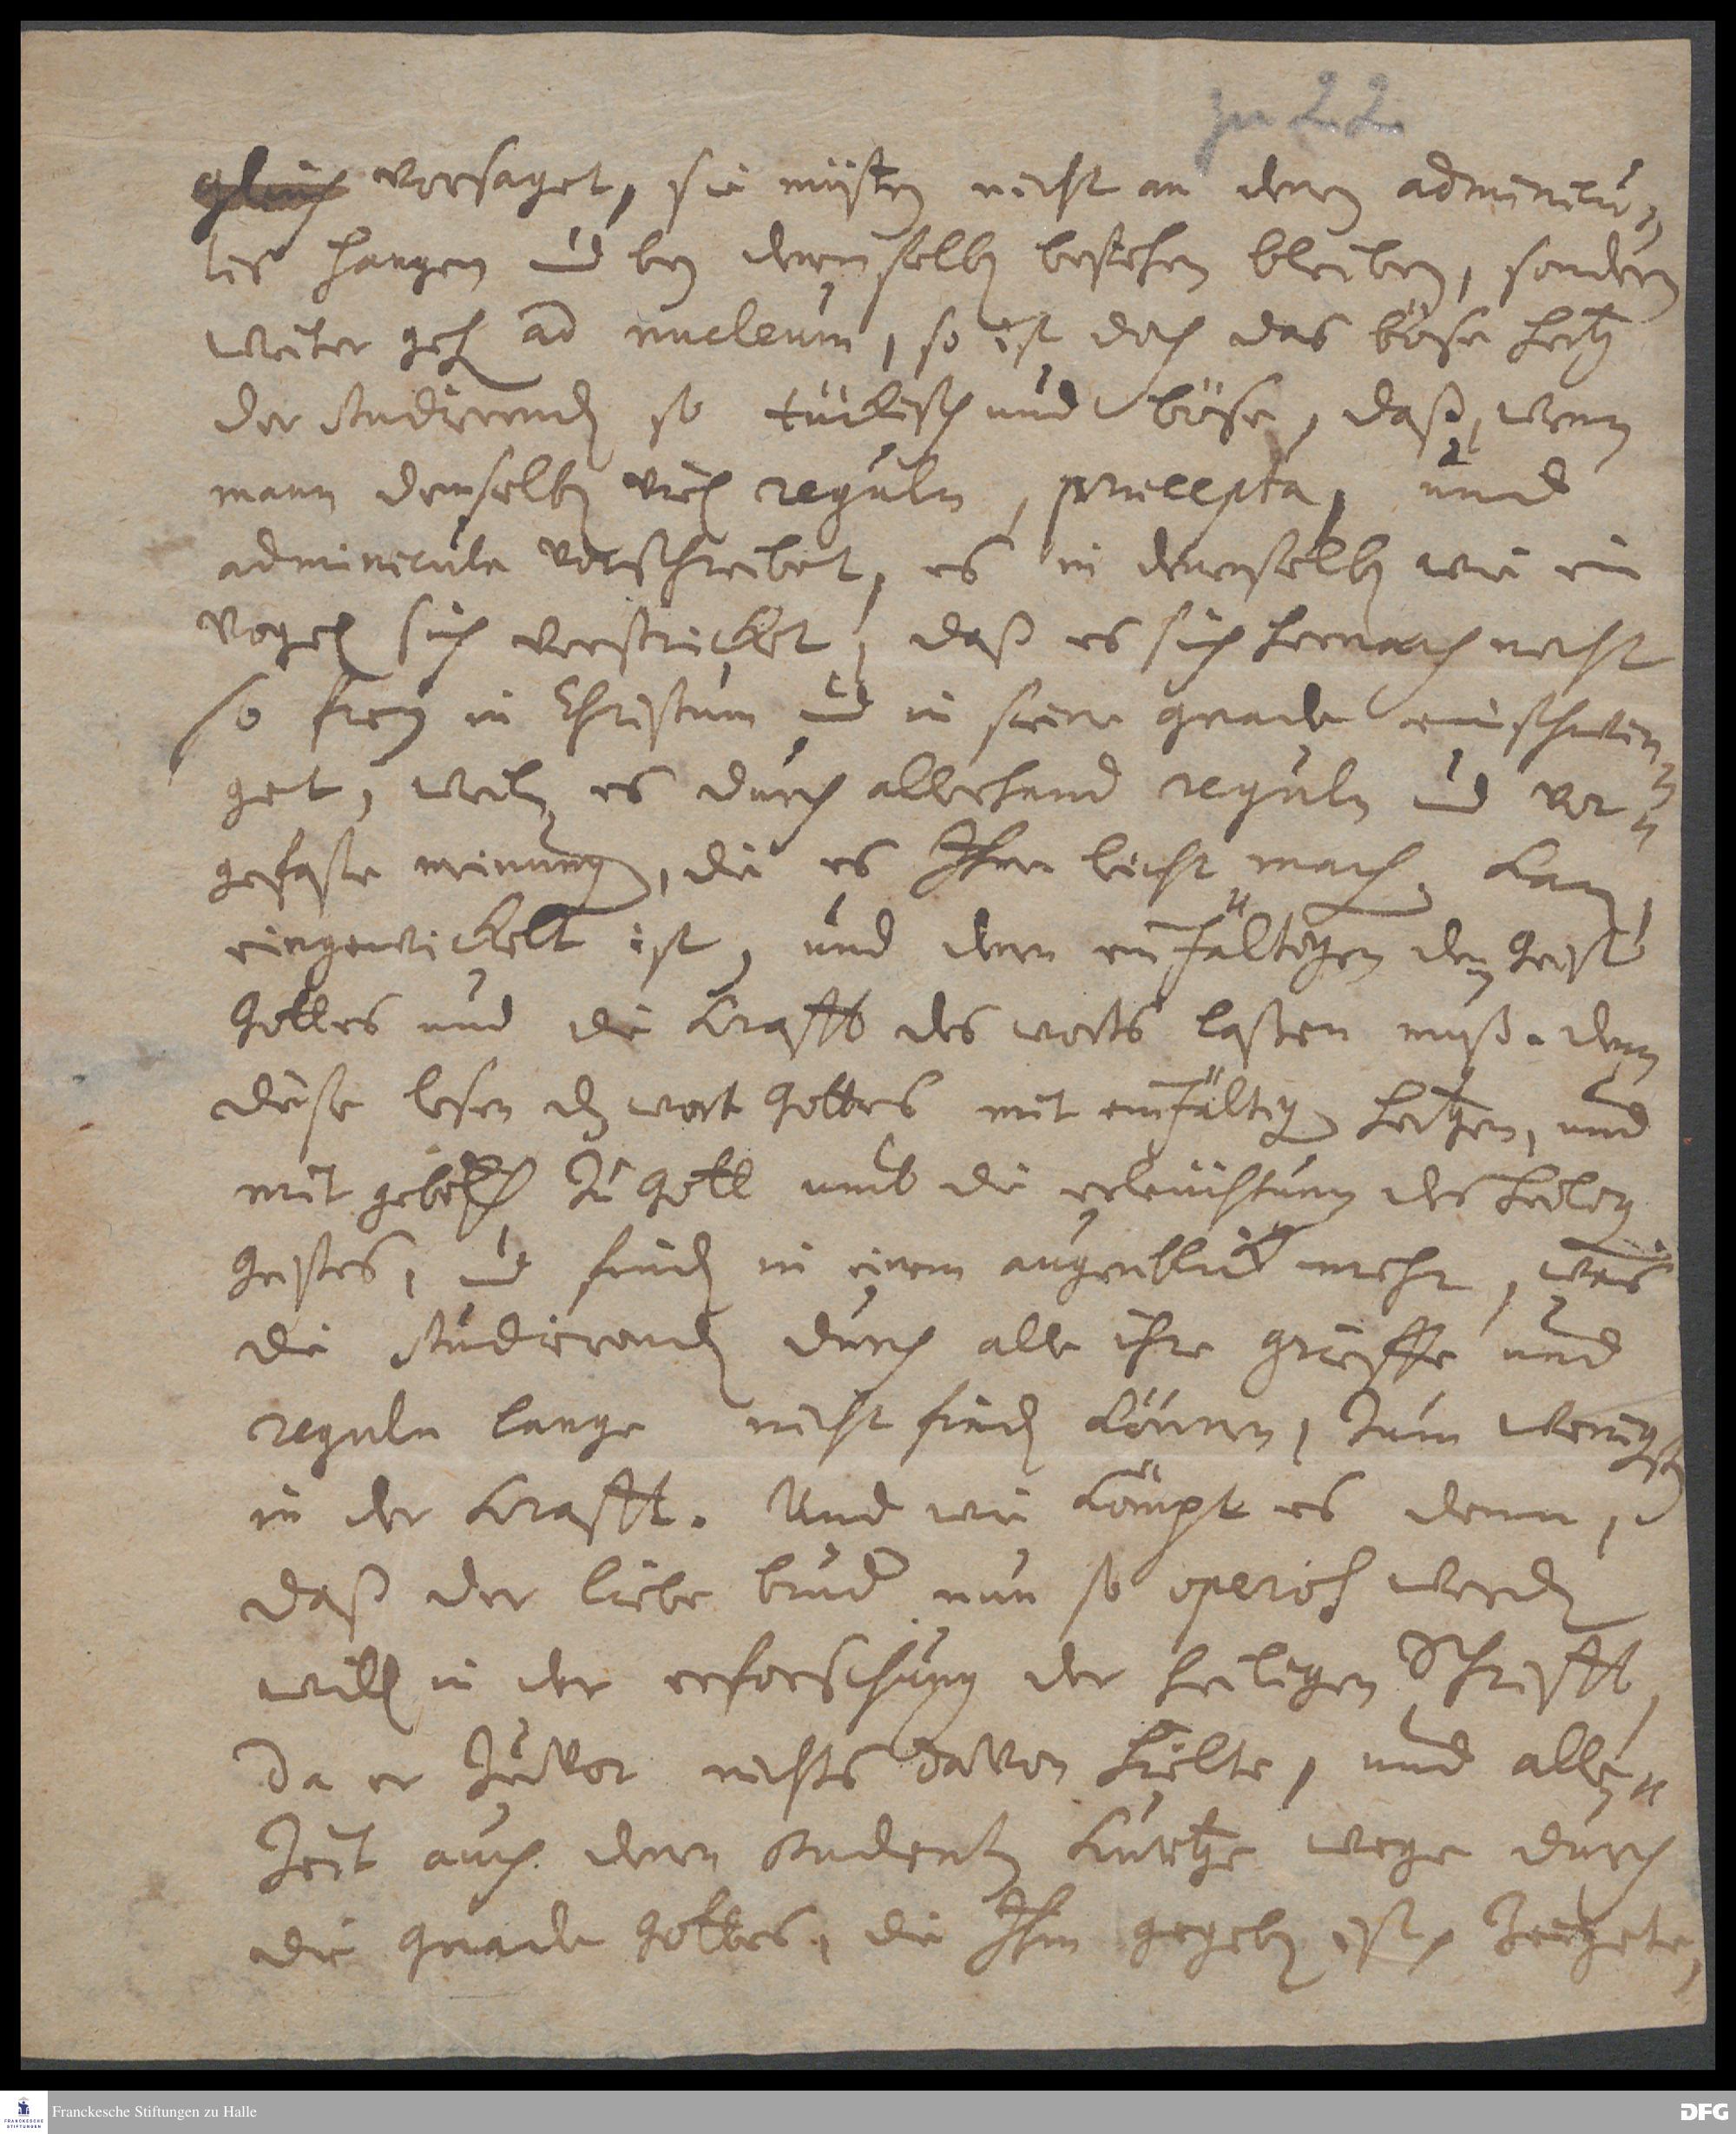 zu 22
gleich vorsaget, sie müsten nicht an denen adminicu-
lis hangen und bey denenselben bestehen bleiben, sondern
weiter gehen ad nucleum, so ist doch das böse Hertz
der studirenden so tückisch und böse, daß, wenn
mann demselben viel reguln, praecepta, und
adminicula vorschreibet, es in denenselben wie ein
Vogel sich verstricket, daß es sich hernach nicht
so frey in Christum und in seine gnade einschwin-
get, weiln es durch allerhand reguln und vor-
gefaste meinungen, die es Ihm leicht machen kan,
eingewickelt ist, und denen einfältigen den Geist
Gottes und die Krafft des worts lassen muß. denn
diese lesen das wort Gottes mit einfältigen Hertzen, und
mit gebeth zu Gott umb die erleuchtung des Heiligen
Geistes, und finden in einem augenblick mehr, was
die studirenden durch alle ihre griffe und
reguln lange nicht finden können, zum wenigsten
in der Krafft. Und wie kömpt es denn,
daß der liebe bruder nun so operos werden
will in der erforschung der Heiligen Schrifft,
da er zuvor nichts davon hielte, und alle-
zeit auch denen studenten kurtze wege durch
die gnade Gottes, die Ihm gegeben ist, zeigete,
Franckesche Stiftungen zu Halle
DFG